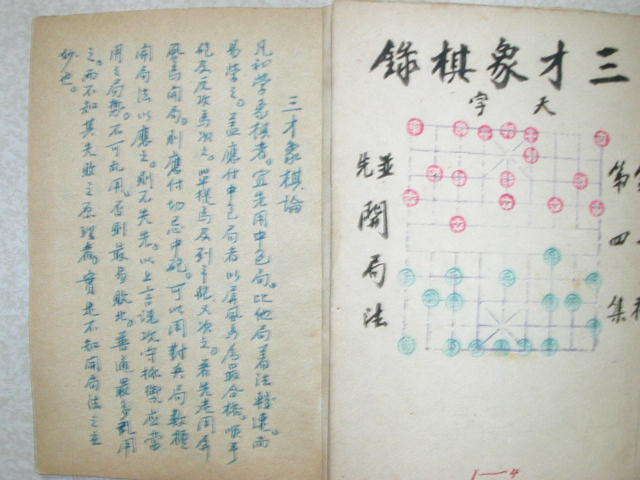 三才象棋錄
天字
第四集
並先開局法
1—4
三才象棋論
凡初學象棋者。宜先用中包局。比他局着法較速而
易學之。蓋應付中包局者以屏風馬為最合格。順手
砲及反攻馬次之。單提馬及列手砲又次之。若先走用屏
風馬開局。則應付切忌中砲。可以用對兵局數種
開局法以應之。則不失先。以上言說攻守抵禦應當
用之局勢。不可亂用。否則最易敗北。普通最多亂用
之。而不知其失敗之原理者。實是不知開局法之主
妙也。